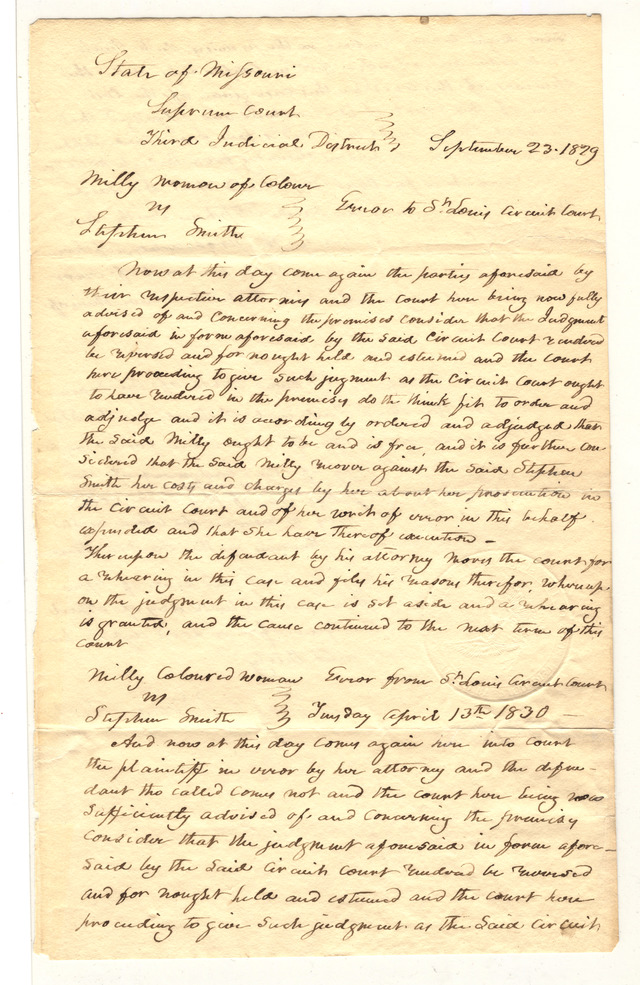 State of Missouri
Supreme Court
Third Judicial District September 23. 1829
Milly woman of Colour
vs Error to St. Louis Circuit Court
Stephen Smith
Now at this day come again the parties aforesaid by
their respective attornies and the court here being now fully
advised of and concerning the premises consider that the Judgment
aforesaid in form aforesaid by the said Circuit Court rendered
be reversed and for nought held and esteemed and the court
here proceeding to give such jugment as the Circuit Court ought
to have rendered in the premises do the think fit to order and
adjudge and it is according by ordered and adjudged that
the said Milly ought to be and is free, and it is further con
sidered that the said Milly recover against the said Stephen
Smith her costs and charges by her about her prosecution in
the Circuit Court and of her writ of error in this behalf
expended and that she have thereof execution –
Thereupon the defendant by his attorney moves the court for
a rehearing in this case and files his reasons therefor, whereup
on the judgment in this case is set aside and a rehearing
is granted, and the cause continued to the next term of this
court
Milly Coloured woman Error from St. Louis Circuit Court
vs
Stephen Smith Tuesday April 13th 1830 –
And now at this day comes again here into court
the plaintiff in error by her attorney and the defen–
dant tho called comes not and the court here being now
sufficiently advised of and concerning the premises
consider that the judgment aforesaid in form afore–
said by the said Circuit court rendered be reversed
and for nought held and esteemed and the court here
proceeding to give such judgment as the said Circuit